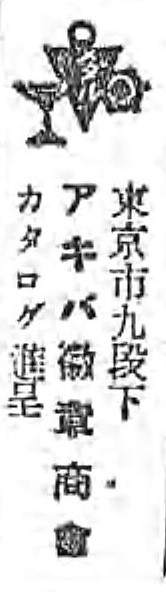 東京市九段下
アキバ徽章商會
カタログ進呈